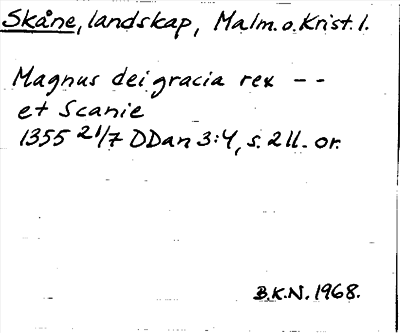 Skåne, landskap, Malm. o. Krist. l.
Magnus dei gracia rex - -
et Scanie
1355 21/7 DDan 3:4, s. 211. or.
B.K.N. 1968.